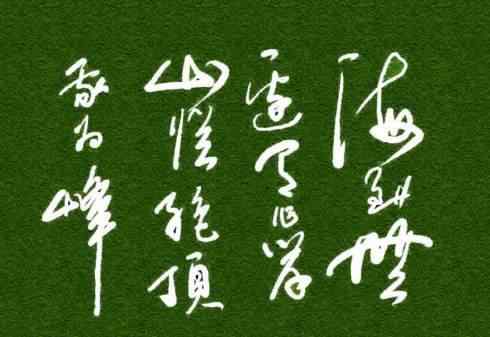 海到無
邊天作岸
山登絶頂
我为峰